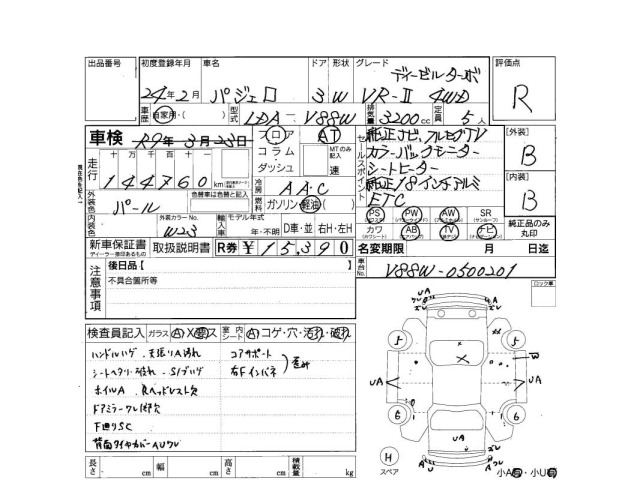 出品番号 初度登録年月 車名 ドア 形状 グレード 評価点
ディーゼルターボ
24年2月 パジェロ 3 W VR-Ⅱ 4WD R
車歴 自家用・( ) 型式 LDA-V88W 排気量 3200cc 定員 5人
車検 R9年3月23日 フロア AT セールスポイント 純正ナビ、フルセグTV 【外装】
コラム MTのみ記入 カラーバックモニター B
走行 十万 万 千 百 十 一 ダッシュ 速 シートヒーター
144760km 冷房 AAC 純正18インチアルミ 【内装】
外装色 色替車は色替と記入 ETC B
パール 燃料 ガソリン・軽油( ) PS PW AW SR
内装色 外装カラーNo. W23 輸入車 モデル年式 年・不明 D車・並 右H・左H カワ AB TV ナビ 純正品のみ丸印
新車保証書 取扱説明書 R券 ¥15,390 名変期限 月 日迄
ディーラー捺印あるもの
注意事項 後日品【 車台No. V88W-0500201
不具合箇所等 ロック車
検査員記入 ガラス A X 要 ス 室内 シート A コゲ・穴・汚れ・破れ
ハンドルハゲ、天張りA汚れ コアサポート
シートヘタリ・破れ・S/ブハゲ 右Fインパネ 歪み
ホイルA Rヘッドレスト欠
ドアミラーワレ
下廻りSC
背面タイヤカバーAUワレ
長さ cm 幅 cm 高さ cm 積載量 kg
UA
5 5
UA A UA
6 6
UA
H
スペア
小A 小U